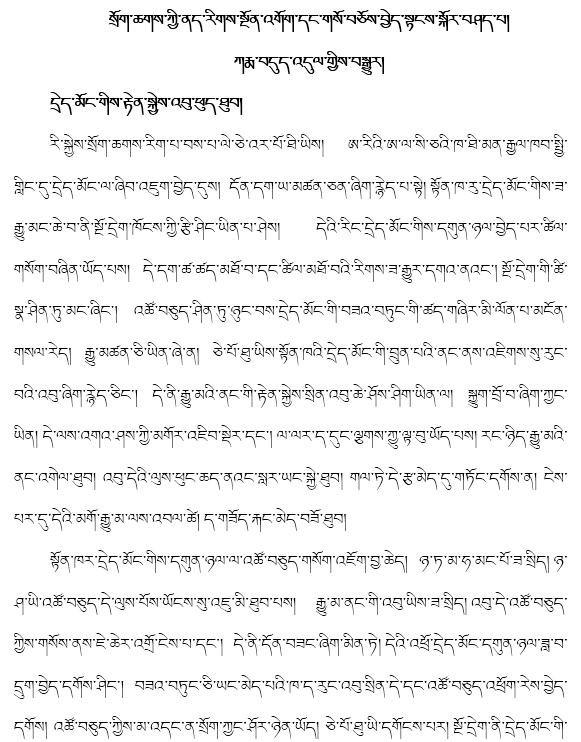 སྲོག་ཆགས་ཀྱི་ནད་རིགས་སྔོན་འགོག་དང་གསོ་བཅོས་བྱེད་སྟངས་སྐོར་བཤད་པ།
ཀརྨ་བདུད་འདུལ་གྱིས་བསྒྱུར།
དྲེད་མོང་གིས་རྟེན་སྐྱེས་འབུ་ཕུད་ཐུབ།
རི་སྐྱེས་སྲོག་ཆགས་རིག་པ་བས་པ་ལེ་ཅེ་འར་པོ་ཐི་ཡིས། ཨ་རིའི་ཨ་ལ་སི་ཅའི་ཁ་ཐི་མན་རྒྱལ་ཁབ་སྤྱི་
གླིང་དུ་དྲེད་མོང་ལ་ཞིབ་འཇུག་བྱེད་དུས། དོན་དག་ཡ་མཚན་ཅན་ཞིག་རྙེད་པ་སྟེ། སྟོན་ཁ་རུ་དྲེད་མོང་གིས་ཟ་
རྒྱུ་མང་ཆེ་བ་ནི་སྔོ་དྲེག་ཁོངས་ཀྱི་རྩི་ཤིང་ཡིན་པ་ཤེས། དེའི་རིང་དྲེད་མོང་གིས་དགུན་ཉལ་བྱེད་པར་ཚིལ་
གསོག་བཞིན་ཡོད་པས། དེ་དག་ཚ་ཚད་མཐོ་བ་དང་ཚིལ་མཐོ་བའི་རིགས་ཟ་རྒྱུར་དགའ་ནའང་། སྔོ་དྲེག་གི་ཚི་
སྣ་ཤིན་ཏུ་མང་ཞིང་། འཚོ་བཅུད་ཤིན་ཏུ་ཉུང་བས་དྲེད་མོང་གི་བཟའ་བཏུང་གི་ཚད་གཞིར་མི་ལོན་པ་མངོན་
གསལ་རེད། རྒྱུ་མཚན་ཅི་ཡིན་ཞེ་ན། ཅེ་པོ་ཐུ་ཡིས་སྟོན་ཁའི་དྲེད་མོང་གི་བྲུན་པའི་ནང་ནས་འཇིགས་སུ་རུང་
བའི་འབུ་ཞིག་རྙེད་ཅིང་། དེ་ནི་རྒྱུ་མའི་ནང་གི་རྟེན་སྐྱེས་སྲིན་འབུ་ཆེ་ཤོས་ཤིག་ཡིན་ལ། སྐྱུག་བྲོ་བ་ཞིག་ཀྱང་
ཡིན། དེ་ལས་འགའ་ཤས་ཀྱི་མགོར་འཇིབ་སྡེར་དང་། ལ་ལར་ད་དུང་ལྕགས་ཀྱུ་ལྟ་བུ་ཡོད་པས། རང་ཉིད་རྒྱུ་མའི་
ནང་འགེལ་ཐུབ། འབུ་དེའི་ལུས་ཕུང་ཆད་ནའང་སླར་ཡང་སྐྱེ་ཐུབ། གལ་ཏེ་དེ་རྩ་མེད་དུ་གཏོང་དགོས་ན། ངེས་
པར་དུ་དེའི་མགོ་རྒྱུ་མ་ལས་འབལ་ཚེ། ད་གཟོད་རྐང་མེད་བཟོ་ཐུབ།
སྟོན་ཁར་དྲེད་མོང་གིས་དགུན་ཉལ་ལ་འཚོ་བཅུད་གསོག་འཇོག་བྱ་ཆེད། ཉ་ཏ་མ་ཧ་མང་པོ་ཟ་སྲིད། ཉ་
ཤ་ཡི་འཚོ་བཅུད་དེ་ལུས་པོས་ཡོངས་སུ་འཇུ་མི་ཐུབ་པས། རྒྱུ་མ་ནང་གི་འབུ་ཡིས་ཟ་སྲིད། འབུ་དེ་འཚོ་བཅུད་
ཀྱིས་གསོས་ནས་ཇེ་ཆེར་འགྲོ་ངེས་པ་དང་། དེ་ནི་དོན་བཟང་ཞིག་མིན་ཏེ། དེའི་འཕྲོ་དྲེད་མོང་དགུན་ཉལ་ཟླ་བ་
དྲུག་བྱེད་དགོས་ཤིང་། བཟའ་བཏུང་ཅི་ཡང་མེད་པའི་ཁ་ད་རུང་འབུ་སྲིན་དེ་དང་འཚོ་བཅུད་འཕྲོག་རེས་བྱེད་
དགོས། འཚོ་བཅུད་ཀྱིས་མ་འདང་ན་སྲོག་ཀྱང་ཤོར་ཉེན་ཡོད། ཅེ་པོ་ཐུ་ཡི་དགོངས་པར། སྔོ་དྲེག་ནི་དྲེད་མོང་གི་